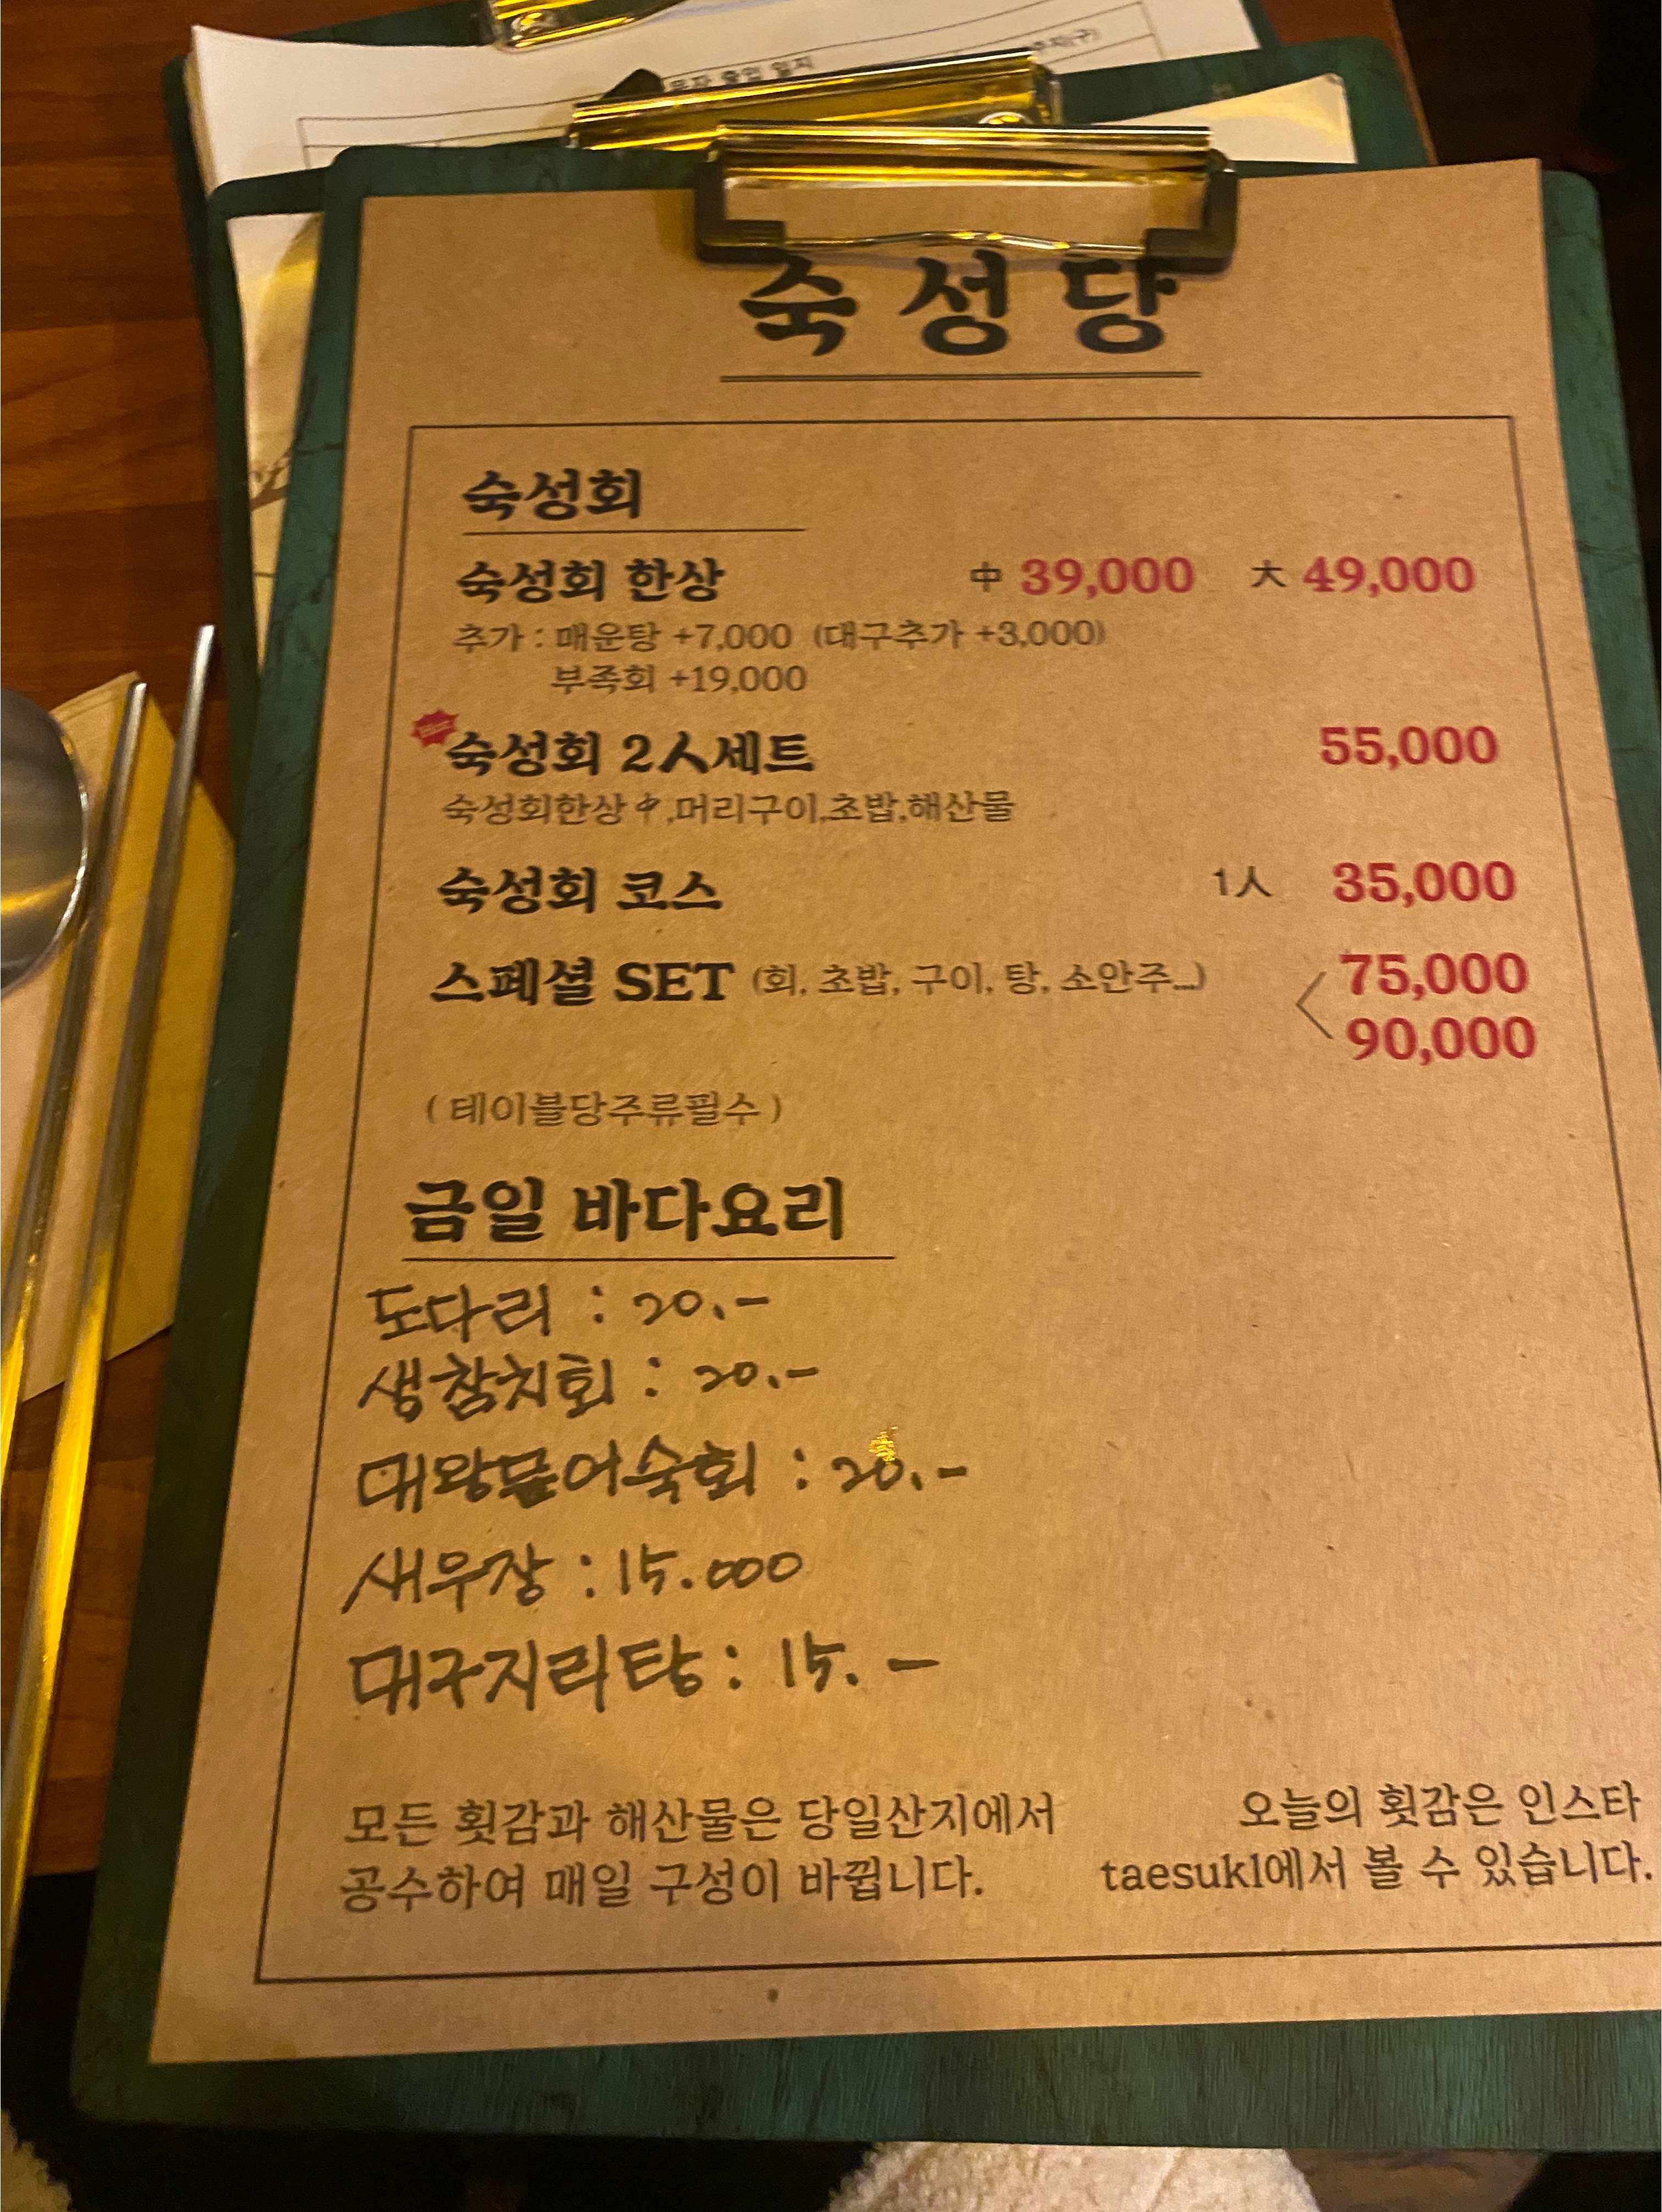 숙성당
숙성회
숙성회 한상 中 39,000 大 49,000
추가 : 매운탕 +7,000 (대구추가 +3,000)
부족회 +19,000
숙성회 2人세트 55,000
숙성회한상中,머리구이,초밥,해산물
숙성회 코스 1人 35,000
스페셜 SET (회, 초밥, 구이, 탕, 소안주...) < 75,000
90,000
( 테이블당주류필수 )
금일 바다요리
도다리 : 20.-
생참치회 : 20.-
대왕문어숙회 : 20.-
새우장 : 15.000
대구지리탕 : 15. -
모든 횟감과 해산물은 당일산지에서
공수하여 매일 구성이 바뀝니다.
오늘의 횟감은 인스타
taesuk1에서 볼 수 있습니다.